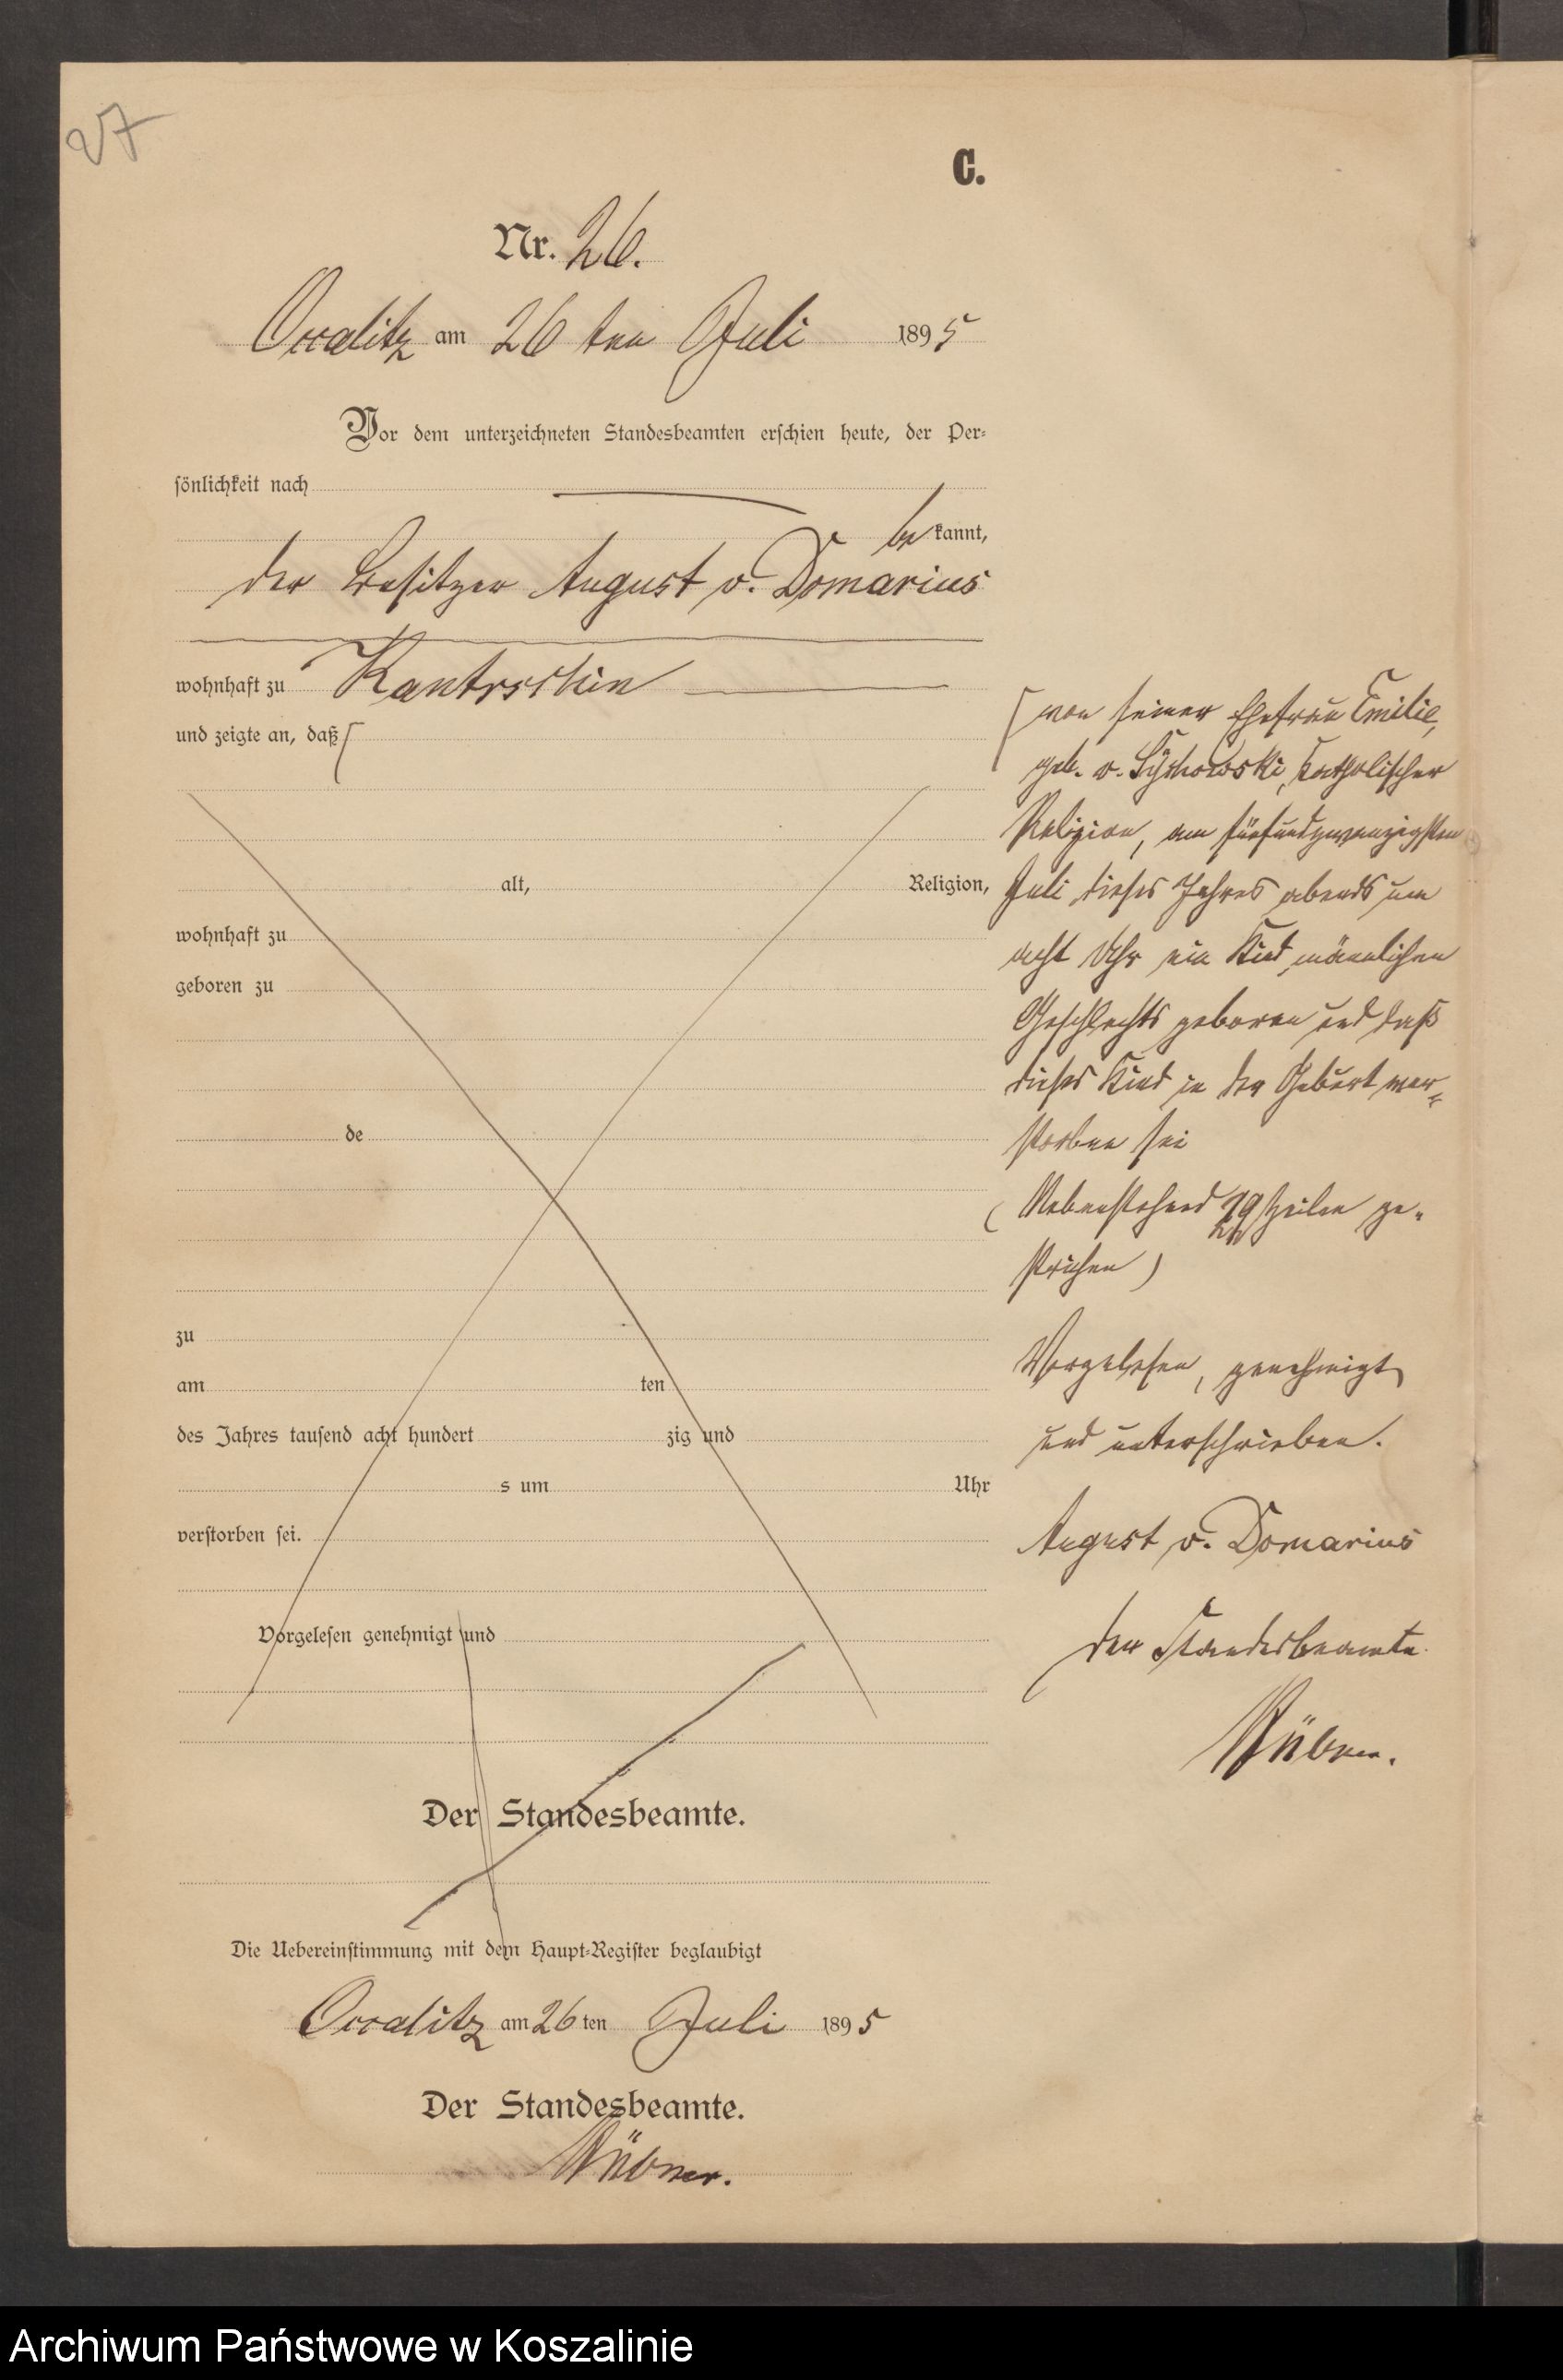 27
C.
Nr. 26.
Occalitz am 26 ten Juli 1895
Vor dem unterzeichneten Standesbeamten erschien heute, der Per-
sönlichkeit nach
be kannt,
der Besitzer August v. Domarius
wohnhaft zu Kantrschin
und zeigte an, daß [
alt, Religion,
wohnhaft zu
geboren zu
de
zu
am ten
des Jahres tausend acht hundert zig und
s um Uhr
verstorben sei.
Vorgelesen genehmigt und
Der Standesbeamte.
Die Uebereinstimmung mit dem Haupt-Register beglaubigt
Occalitz am 26 ten Juli 1895
Der Standesbeamte.
[ von seiner Ehefrau Emilie,
geb. v. katholischer
Religion, am fünfundzwanzigsten
Juli dieses Jahres abends um
acht Uhr ein Kind männlichen
Geschlechts geboren und daß
dieses Kind in der Geburt ver-
storben sei
( Nebenstehend Zeilen ge-
strichen )
Vorgelesen, genehmigt
und unterschrieben.
August v. Domarius
Der Standesbeamte.
Archiwum Państwowe w Koszalinie